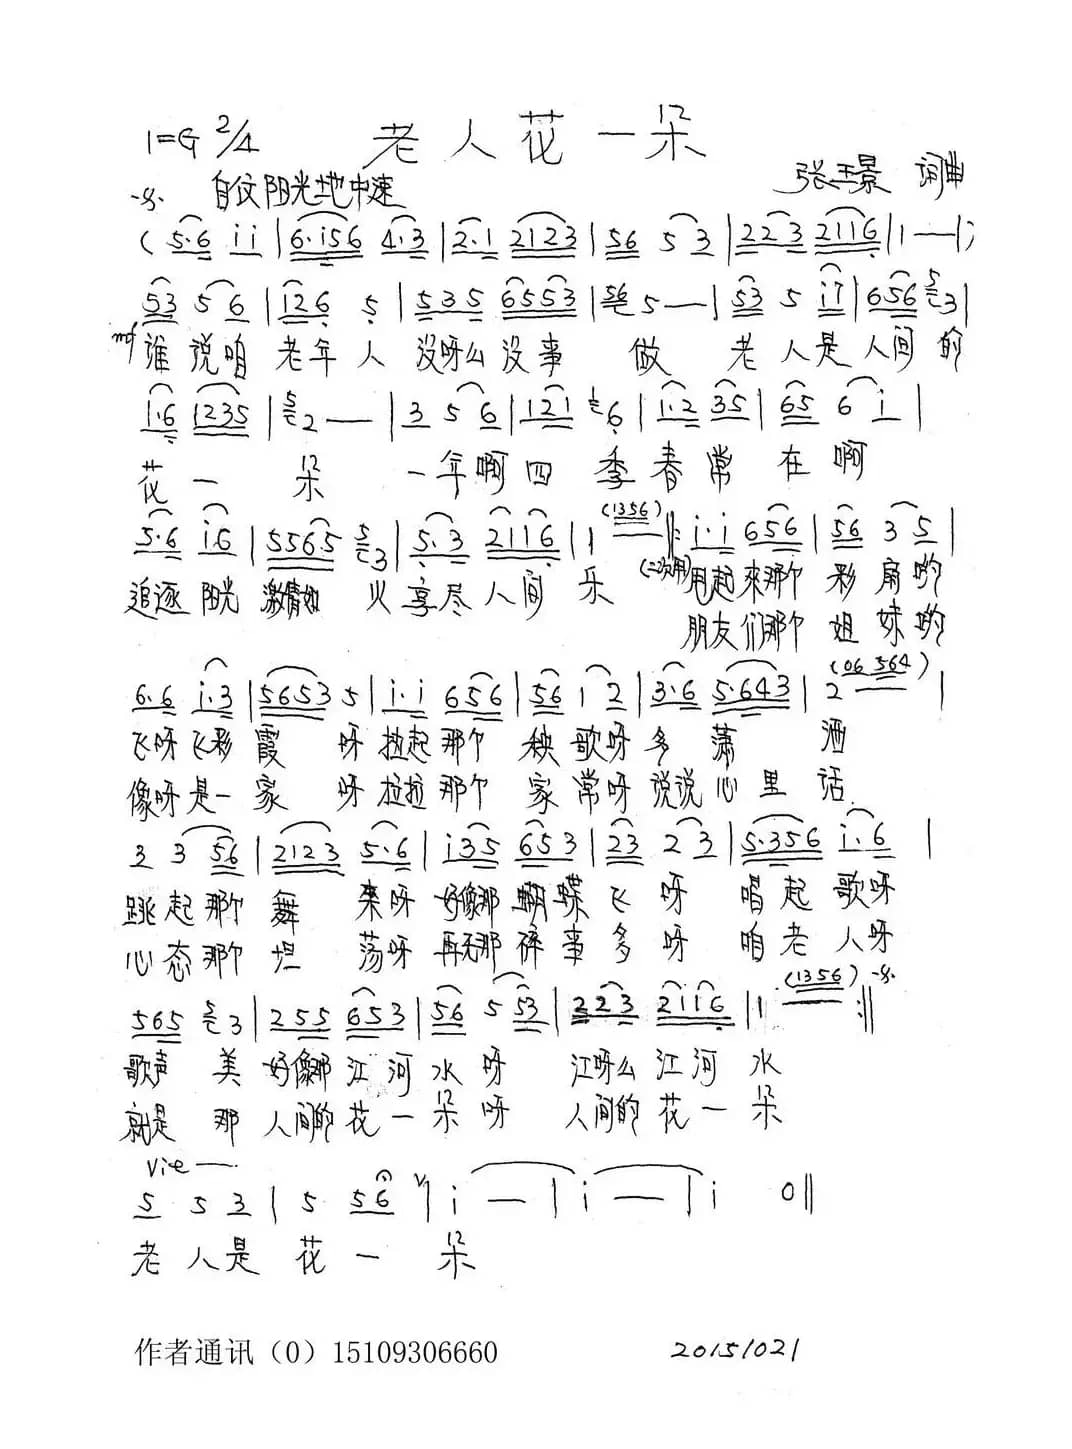 1=G 2/4 老人花一朵
自位阳光地中速 张玉景 词曲
( 5·6 i i | 6·i56 4·3 | 2·1 2123 | 56 5 3 | 223 2116 | 1 — | ;
53 5 6 | 126 5 | 535 6553 | 56 5 — | 53 5 i7 | 656 5 3 |
mf 谁说咱老年人没呀么没事做 老人是人间的
1·6 1235 | 5 2 — | 3 5 6 | 121 6 | 1·2 35 | 65 6 i |
花一朵 一年啊四季春常在啊
5·6 i6 | 5565 5 3 | 5·3 2116 | 1 (1356) ‖: i·i 656 | 56 3 5 |
追逐阳光激情如火享尽人间乐 (二次用) 甩起来那个彩扇哟
朋友们那个姐妹哟
6·6 i·3 | 5653 5 | i·i 656 | 56 1 2 | 3·6 5·643 | 2 — (06 564) |
飞呀飞彩霞呀拉起那个秧歌呀多潇洒
像呀是一家呀拉拉那个家常呀说说心里话
3 3 56 | 2123 5·6 | i35 653 | 23 2 3 | 5·356 i·6 |
跳起那个舞来呀好像那蝴蝶飞呀唱起歌呀
心态那个坦荡呀再无那碎事多呀咱老人呀
565 5 3 | 255 653 | 56 5 53 | 223 2116 | 1 (1356) :‖
歌声美好像那江河水呀江呀么江河水
就是那人间的花一朵呀人间的花一朵
5 5 3 | 5 56 | i — | i — | i 0 ‖
老人是花一朵
作者通讯（0）15109306660 20151021